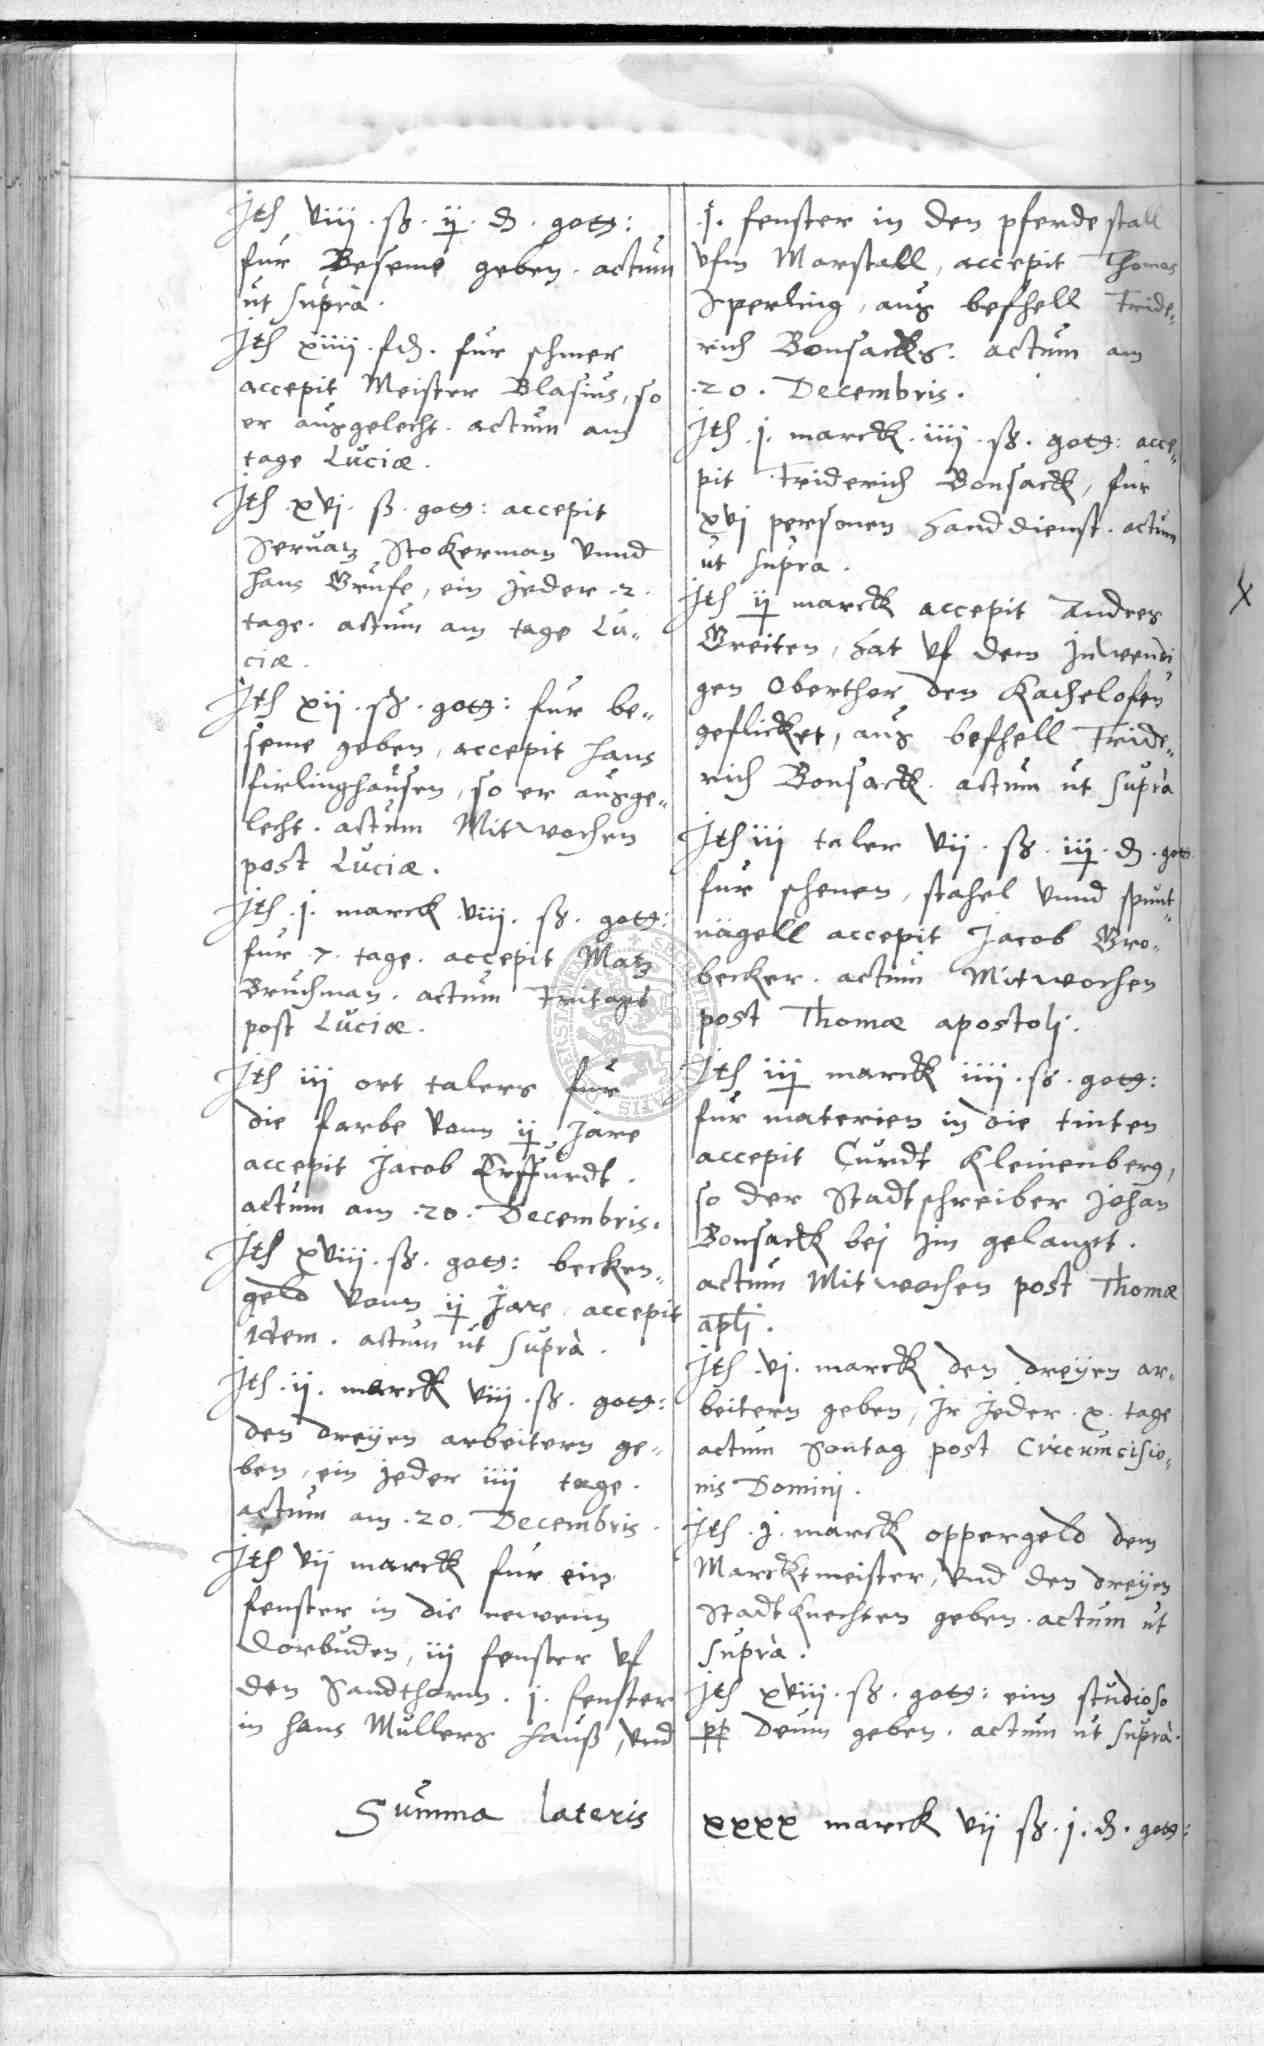 Jth viij . ß . ij . ₰ . gotg:
fur Beseme geben . actum
ut supra.
Jth xiiij . ₰ . fur schmer
accepit Meister Blasius, so
er ausgelecht . actum am
tage Luciæ.
Jth xvj . ß . gotg: accepit
Servatz Stokerman vnnd
Hans Grufe, ein jeder .2.
tage . actum am tage Lu-
ciæ.
Jth xij . ß . gotg: fur be-
seme geben, accepit Hans
firlinghausen, so er ausge-
lecht . actum Mitwochen
post Luciæ.
Jth . j . marck viij . ß . gotg:
fur .7. tage . accepit Matz
Bruchman . actum Fritags
post Luciæ.
Jth iij ort talers fur
die farbe vonn ij Jare
accepit Jacob Erffurdt.
actum am .20. Decembris.
Jth xviij . ß . gotg: becken-
geld vonn ij Jare accepit
idem . actum ut supra.
Jth . ij . marck viij . ß . gotg:
den dreyen arbeitern ge-
ben, ein jeder iiij tage.
actum am .20. Decembris.
Jth vij marck fur ein
fenster in die newenn
Dorbuden, iij fenster vf
den Sandthorm . j . fenster
in Hans Mullers Hauß, vnd
Summa lateris
. j . fenster in den pferde stall
vfm Marstall, accepit Thomas
Sperling, aus befhell Fride-
rich Bonsacks . actum am
.20. Decembris.
Jth . j . marck . iiij . ß . gotg: acce-
pit Friderich Bonsack, fur
xvj personen handdienst . actum
ut supra.
Jth ij marck accepit Andres
Breiten, hat vf dem Jnwendi
gen Oberthor den Kachelofen
geflicket, aus befhell Fride-
rich Bonsack . actum ut supra
Jth iij taler vij . ß . iij . ₰ . gotg
fur schenen, stahel vnnd spunt-
nägell accepit Jacob Gro-
becker . actum Mitwochen
post Thomæ apostolj.
Jth iij marck iiij . ß . gotg:
fur materien in die tinten
accepit Curdt Kleinenberg,
so der Stadtschreiber Johan
Bonsack bej jm gelangt.
actum Mitwochen post Thomæ
aplj.
Jth . vj . marck den dreyen ar-
beitern geben, Jr jeder . x . tage
actum Sontag post Circumcisio-
nis Dominj.
Jth . j . marck oppergeld dem
Marcktmeister, vnd den dreyen
Stadtknechten geben . actum ut
supra.
Jth xviij . ß . gotg: eim studioso
pp deum geben . actum ut supra.
xxxx marck vij ß . j . ₰ . gotg: